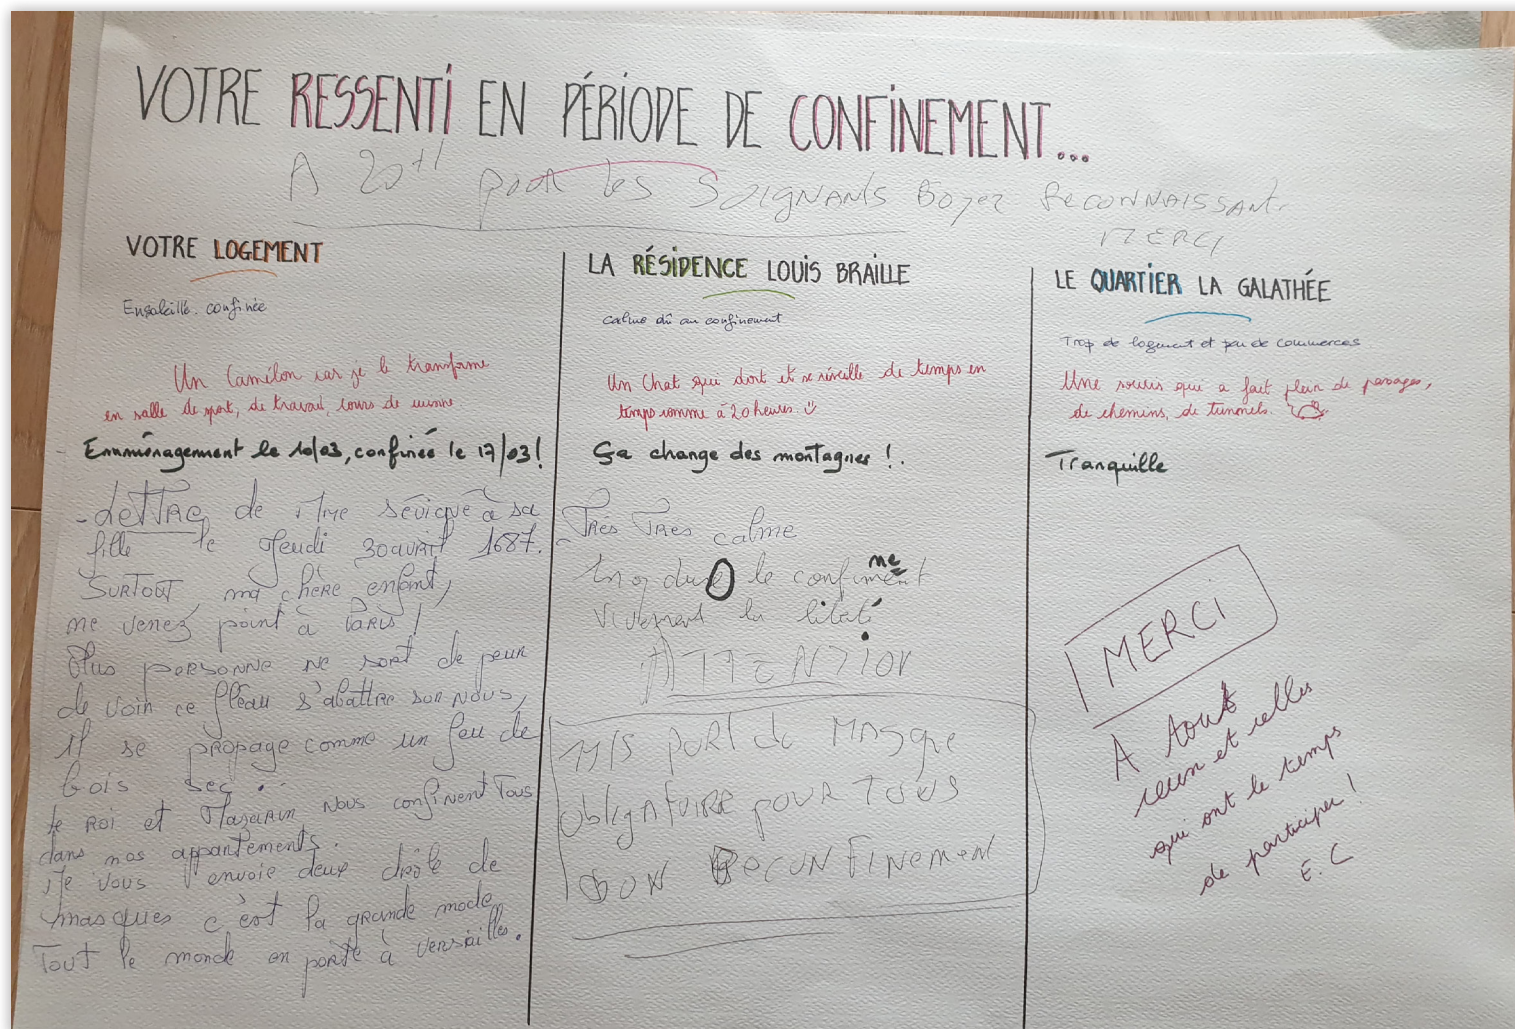 VOTRE RESSENTI EN PÉRIODE DE CONFINEMENT...
A 20H pour les SOIGNANTS Soyez Reconnaissant
MERCI
VOTRE LOGEMENT
Ensoleillé. confinée
Un Caméléon car je le transforme
en salle de sport, de travail, cours de cuisine
Emménagement le 10/03, confinée le 17/03!
- LETTRE de Mme Sévigné à sa
fille le Jeudi 30 avril 1687.
SURTOUT, ma chère enfant,
ne venez point à PARIS!
Plus personne ne sort de peur
de voir ce fléau s'abattre sur nous,
il se propage comme un feu de
bois sec.
le ROI et Mazarin nous confinent Tous
dans nos appartements.
Je vous envoie deux drôle de
masques c'est la grande mode
Tout le monde en porte à versailles.
LA RÉSIDENCE LOUIS BRAILLE
Calme dû au confinement
Un Chat qui dort et se réveille de temps en
temps comme à 20 heures.
Ça change des montagnes !.
Très Très calme
le confinement
vivement la
ATTENTION
11/5 PORT du MASQUE
obligatoire pour TOUS
BON DECONFINEMENT
LE QUARTIER LA GALATHÉE
Trop de logement et peu de commerces
Une souris qui a fait plein de passages,
de chemins, de tunnels.
Tranquille
MERCI
A tout
ceux et celles
qui ont le temps
de participer !
E.C